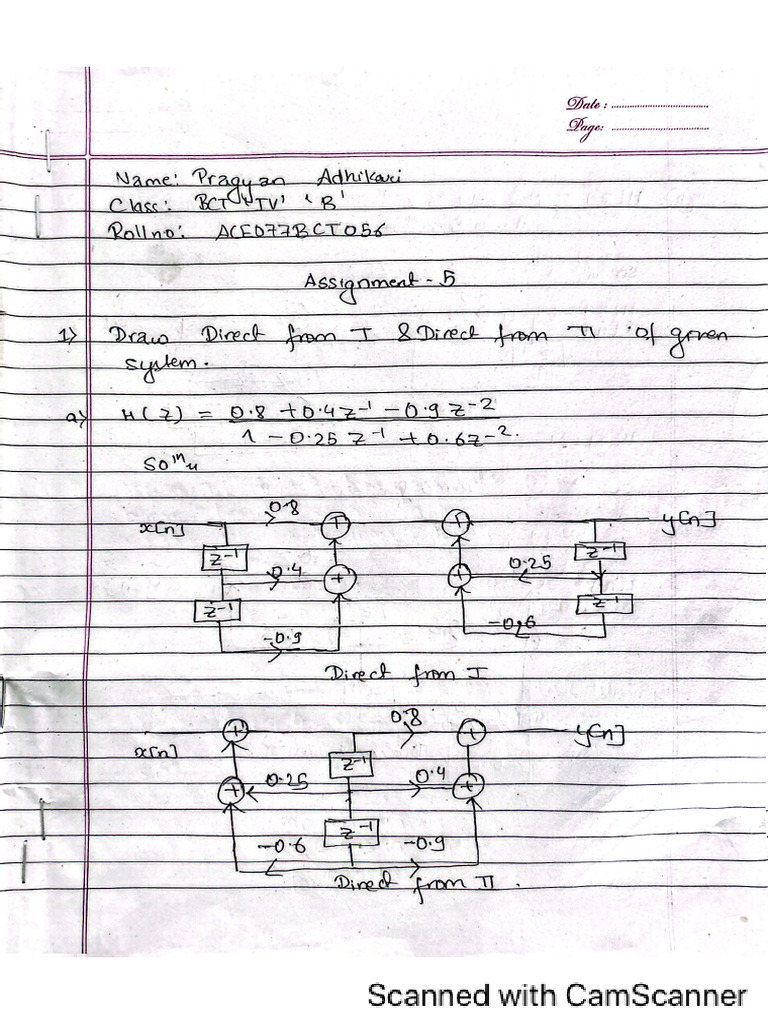 Date : ..............................
Page: ..............................
Name: Pragyan Adhikari
Class: BCT 'IV' 'B'
Roll no: ACE077BCT056
Assignment - 5
1) Draw Direct from I & Direct from II of given
system.
a) H(z) = 0.8 + 0.4z⁻¹ - 0.9z⁻²
1 - 0.25z⁻¹ + 0.6z⁻².
soⁿ
0.8
x[n] + + y[n]
z⁻¹ z⁻¹
0.4 + + 0.25
z⁻¹ z⁻¹
-0.9 -0.6
Direct from I
0.8
x[n] + + y[n]
z⁻¹
+ 0.25 0.4 +
z⁻¹
-0.6 -0.9
Direct from II.
Scanned with CamScanner